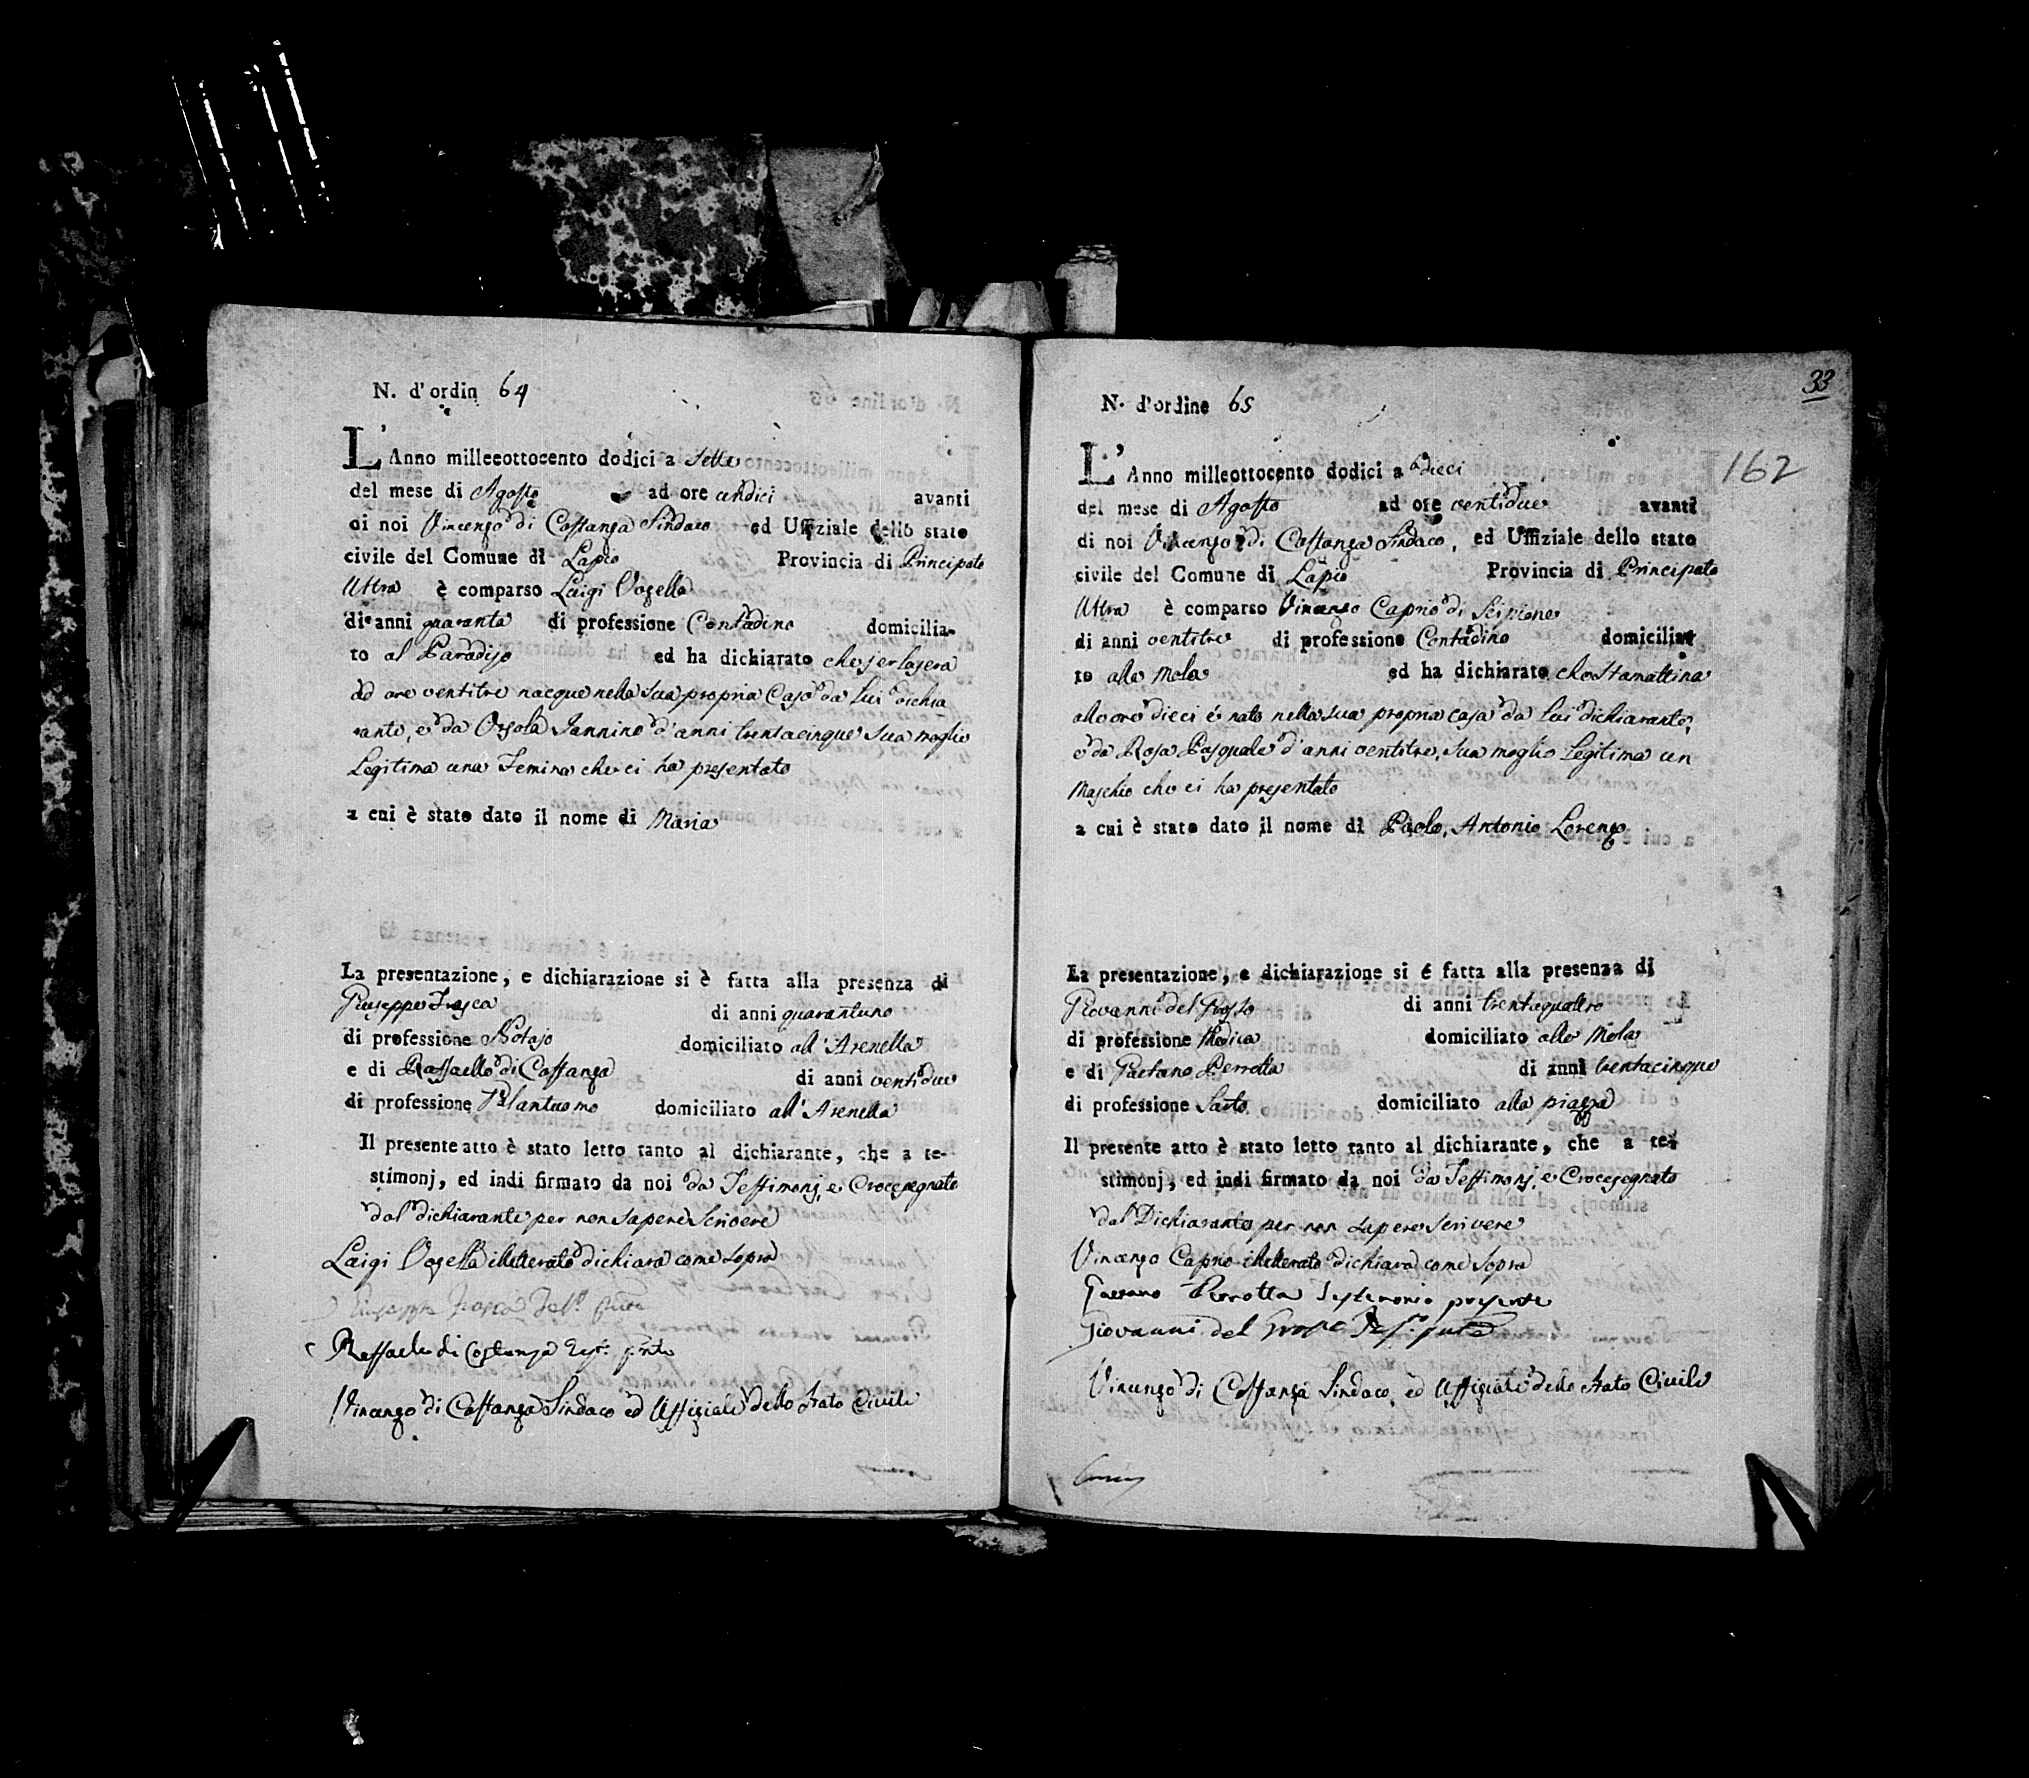 N. d'ordin 64
L'Anno milleottocento dodici a Sette
del mese di Agosto ad ore undici avanti
di noi Vincenzo di Costanza Sindaco ed Uffiziale dello stato
civile del Comune di Lapio Provincia di Principato
Ultra è comparso Luigi Vozella
di anni quaranta di professione Contadino domicilia-
to al Paradiso ed ha dichiarato che jer la sera
ad ore ventitre nacque nella sua propria Casa da lui dichia
rante, e da Orsola Iannino d'anni trentacinque sua moglie
Legitima una Femina che ci ha presentato
a cui è stato dato il nome di Maria
La presentazione, e dichiarazione si è fatta alla presenza di
Giuseppe Frasca di anni quarantuno
di professione Notajo domiciliato all'Arenella
e di Raffaello di Costanza di anni ventidue
di professione Galantuomo domiciliato all'Arenella
Il presente atto è stato letto tanto al dichiarante, che a te-
stimonj, ed indi firmato da noi da Testimonj, e Crocesegnato
dal dichiarante per non sapere Scrivere
Luigi Vozella illetterato dichiara come sopra
Giuseppe Frasca
Raffaele di Costanza
Vincenzo di Costanza Sindaco ed Uffiziale dello Stato Civile
33
162
N. d'ordine 65
L'Anno milleottocento dodici a dieci
del mese di Agosto ad ore ventidue avanti
di noi Vincenzo di Costanza Sindaco, ed Uffiziale dello stato
civile del Comune di Lapio Provincia di Principato
Ultra è comparso Vincenzo Caprio di Scipione
di anni ventitre di professione Contadino domicilia
to alla Mola ed ha dichiarato che Stamattina
alle ore dieci é nato nella sua propria casa da lui dichiarante,
e da Rosa Pasquale d'anni ventitre, sua moglie Legitima un
Maschio che ci ha presentato
a cui è stato dato il nome di Paolo, Antonio Lorenzo
La presentazione, e dichiarazione si é fatta alla presenza di
Giovanni del Grosso di anni trentaquattro
di professione Medica domiciliato alla Mola
e di Gaetano Perrotta di anni trentacinque
di professione Sarto domiciliato alla piazza
Il presente atto è stato letto tanto al dichiarante, che a te-
stimonj, ed indi firmato da noi da Testimonj, e Crocesegnato
dal Dichiarante per non sapere Scrivere
Vincenzo Caprio illetterato dichiara come Sopra
Gaetano Perrotta Testimonio presente
Giovanni del Grosso
Vincenzo di Costanza Sindaco, ed Uffiziale dello Stato Civile